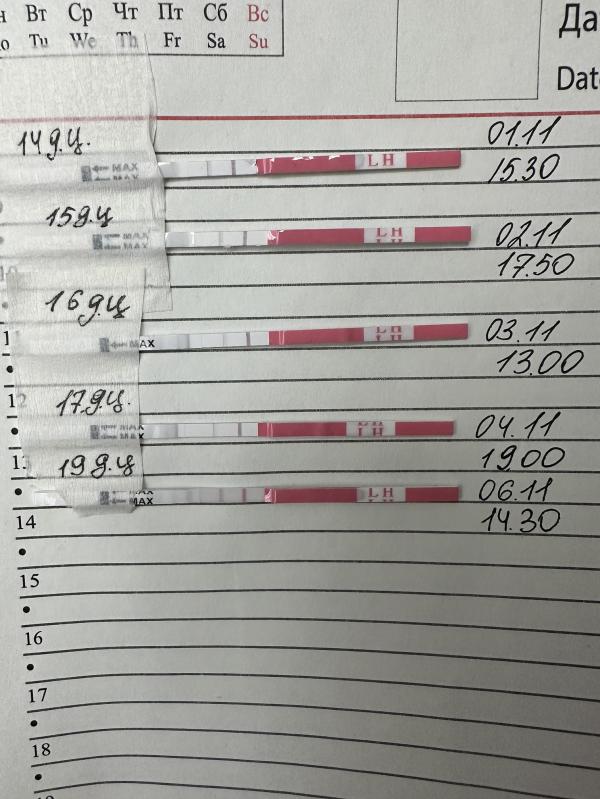 Вт Ср Чт Пт Сб Вс
Tu We Th Fr Sa Su
Да
Date
14 д.ц.
MAX
MAX
LH
01.11
15.30
15 д.ц
MAX
LH
LH
02.11
17.50
16 д.ц
MAX
LH
LH
03.11
13.00
17 д.ц.
MAX
LH
LH
04.11
19.00
19 д.ц
MAX
LH
06.11
14.30
14
15
16
17
18